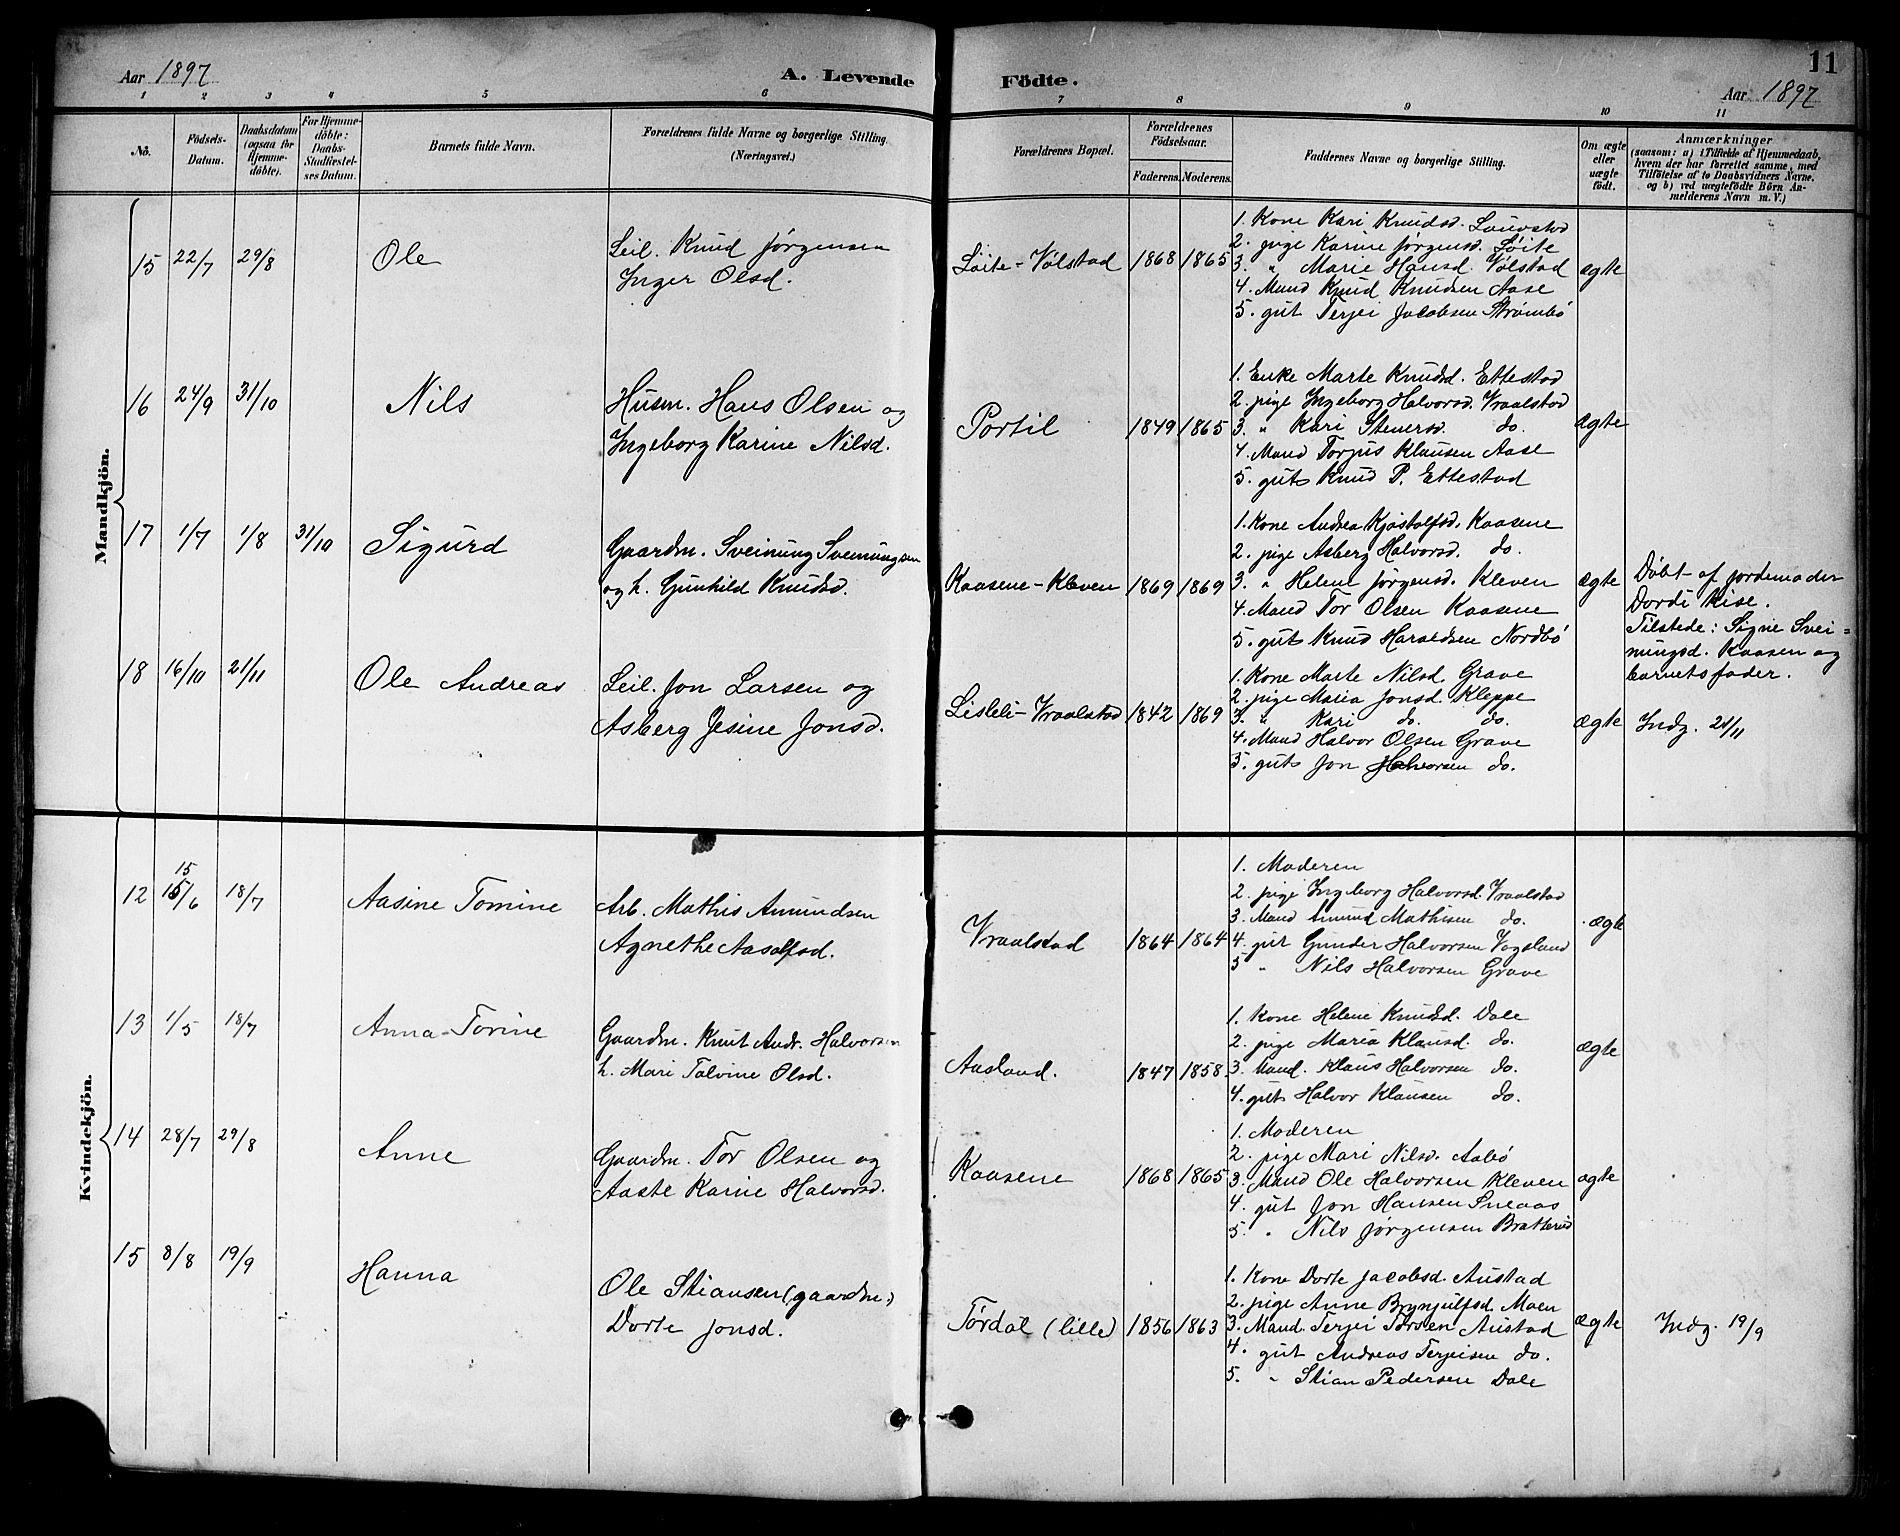 Aar 1897
A. Levende
Födte.
11
Aar 1897
1 2 3 4 5 6 7 8 9 10 11
No.
Födsels-
Datum.
Daabsdatum
(ogsaa for
Hjemme-
döbte).
For Hjemme-
döbte:
Daabs-
Stadfæstel-
ses Datum.
Barnets fulde Navn.
Forældrenes fulde Navne og borgerlige Stilling.
(Næringsvei.)
Forældrenes Bopæl.
Forældrenes
Födselsaar.
Faderens. Moderens.
Faddernes Navne og borgerlige Stilling.
Om ægte
eller
uægte
födt.
Anmærkninger
(saasom: a) i Tilfælde af Hjemmedaab,
hvem der har forrettet samme, med
Tilföielse af to Daabsvidners Navne.
og b) ved uægtefödte Börn An-
melderens Navn m. V.)
Mandkjön.
15 22/7 29/8
Ole
Leil. Knud Jørgensen
Inger Olsd.
Löite-Vølstad 1868 1865
1. Kone Kari Knudsd. Lauvstad
2. pige Karine Jørgensd. Löite
3. " Marie Hansd. Vølstad
4. Mand Knud Knudsen Aase
5. gut Terjei Jacobsen Strømbö
ægte
16 24/9 31/10
Nils
Husm. Hans Olsen og
Ingeborg Karine Nilsd.
Portil 1849 1865
1. Enke Marte Knudsd. Ettestad
2. pige Ingeborg Halvorsd. Vraalstad
3. " Kari Stenersd. do.
4. Mand Torjus Klausen Aase
5. gut Knud P. Ettestad
ægte
17 1/7 1/8 31/10
Sigurd
Gaardm. Sveinung Sveinungsen
og h. Gunhild Knudsd.
Kaasene-Kleven 1869 1869
1. Kone Andrea Kjøstolfsd. Kaasene
2. pige Asberg Halvorsd. do.
3. " Helene Jørgensd. Kleven
4. Mand Tor Olsen Kaasene
5. gut Knud Haraldsen Nordbö
ægte
Döbt af jordemoder
Dordi Kise.
Tilstede: Signe Svei=
nungsd. Kaasen og
barnets fader.
18 16/10 21/11
Ole Andreas
Leil. Jon Larsen og
Asberg Jesine Jonsd.
Lisleli-Vraalstad 1842 1869
1. Kone Marte Nilsd. Grave
2. pige Maria Jonsd. Kleppe
3. " Kari do. do.
4. Mand Halvor Olsen Grave
5. gut Jon Halvorsen do.
ægte
Indg. 21/11
Kvindekjön.
12 15/6 15 18/7
Aasine Tomine
Arb. Mathis Amundsen
Agnethe Aasolfsd.
Vraalstad 1864 1864
1. Moderen
2. pige Ingeborg Halvorsd. Vraalstad
3. Mand Amund Mathisen do.
4. gut Gunder Halvorsen Vogsland
5 " Nils Halvorsen Grave
ægte
13 1/5 18/7
Anna Torine
Gaardm. Knut Andr. Halvorsen
h. Mari Talvine Olsd.
Aasland. 1847 1858
1. Kone Helene Knudsd. Dale
2. pige Maria Klausd. do.
3. Mand. Klaus Halvorsen do.
4. gut Halvor Klausen do.
ægte
14 28/7 29/8
Anne
Gaardm. Tor Olsen og
Aaste Karine Halvorsd.
Kaasene 1868 1865
1. Moderen
2. pige Mari Nilsd. Aabö
3. Mand Ole Halvorsen Kleven
4. gut Jon Hansen Sneaas
5. " Nils Jørgensen Bratterud
ægte
15 8/8 19/9
Hanna
Ole Stiansen (gaardm.)
Dorte Jonsd.
Tørdal (lille) 1856 1863
1. Kone Dorte Jacobsd. Austad
2. pige Anne Brynjulfsd. Moen
3. Mand. Terjei Torsen Austad
4. gut Andreas Terjeisen do.
5. " Stian Pedersen Dale
ægte
Indg. 19/9